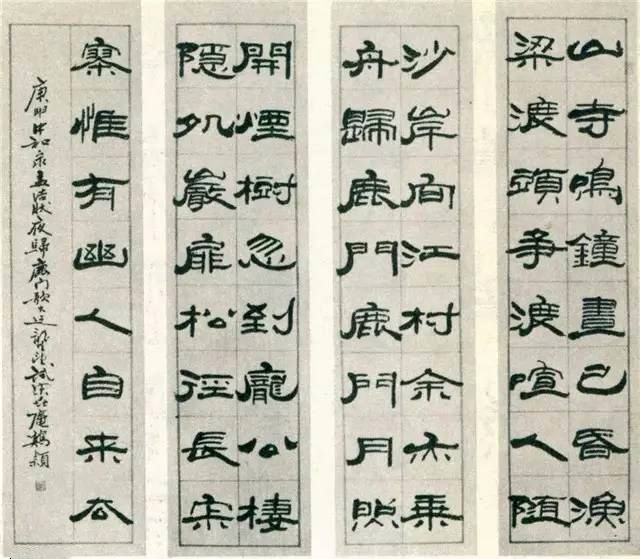 山寺鳴鐘晝已昏漁
梁渡頭爭渡喧人随
沙岸向江村余亦乗
舟歸鹿門鹿門月照
開煙樹忽到龐公棲
隱処巖扉松徑長寂
寥惟有幽人自来去
庚申中和录孟浩然夜歸鹿門歌